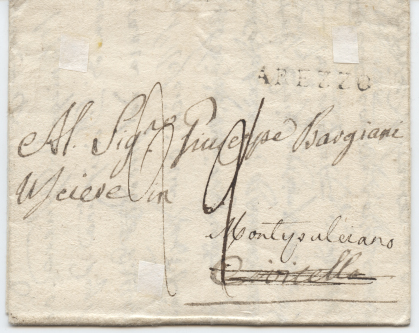 AREZZO
Al Sig.re Giuseppe Bargiani
Usciere in
Montepulciano
Civitella